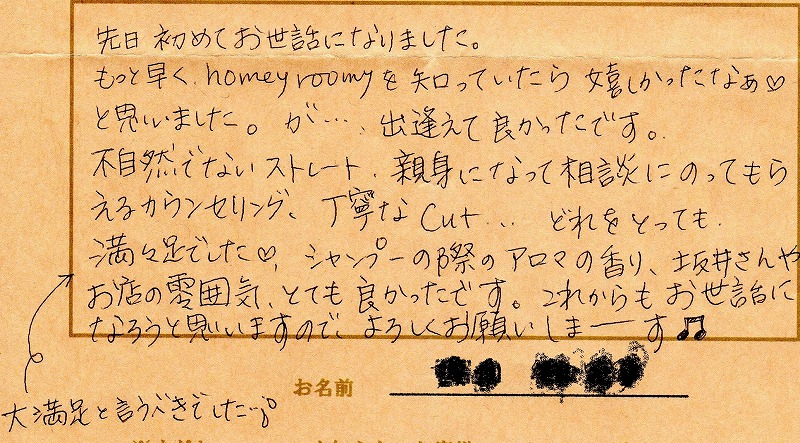 先日 初めてお世話になりました。
もっと早く、homeyroomyを知っていたら 嬉しかったなぁ♡
と思いました。が…、出逢えて良かったです。
不自然でないストレート、親身になって相談にのってもら
えるカウンセリング、丁寧なCut… どれをとっても、
満々足でした♡、シャンプーの際のアロマの香り、坂井さんや
お店の雰囲気、とても良かったです。これからもお世話に
なろうと思いますので、よろしくお願いしまーーす♫
お名前
大満足と言うべきでした…。